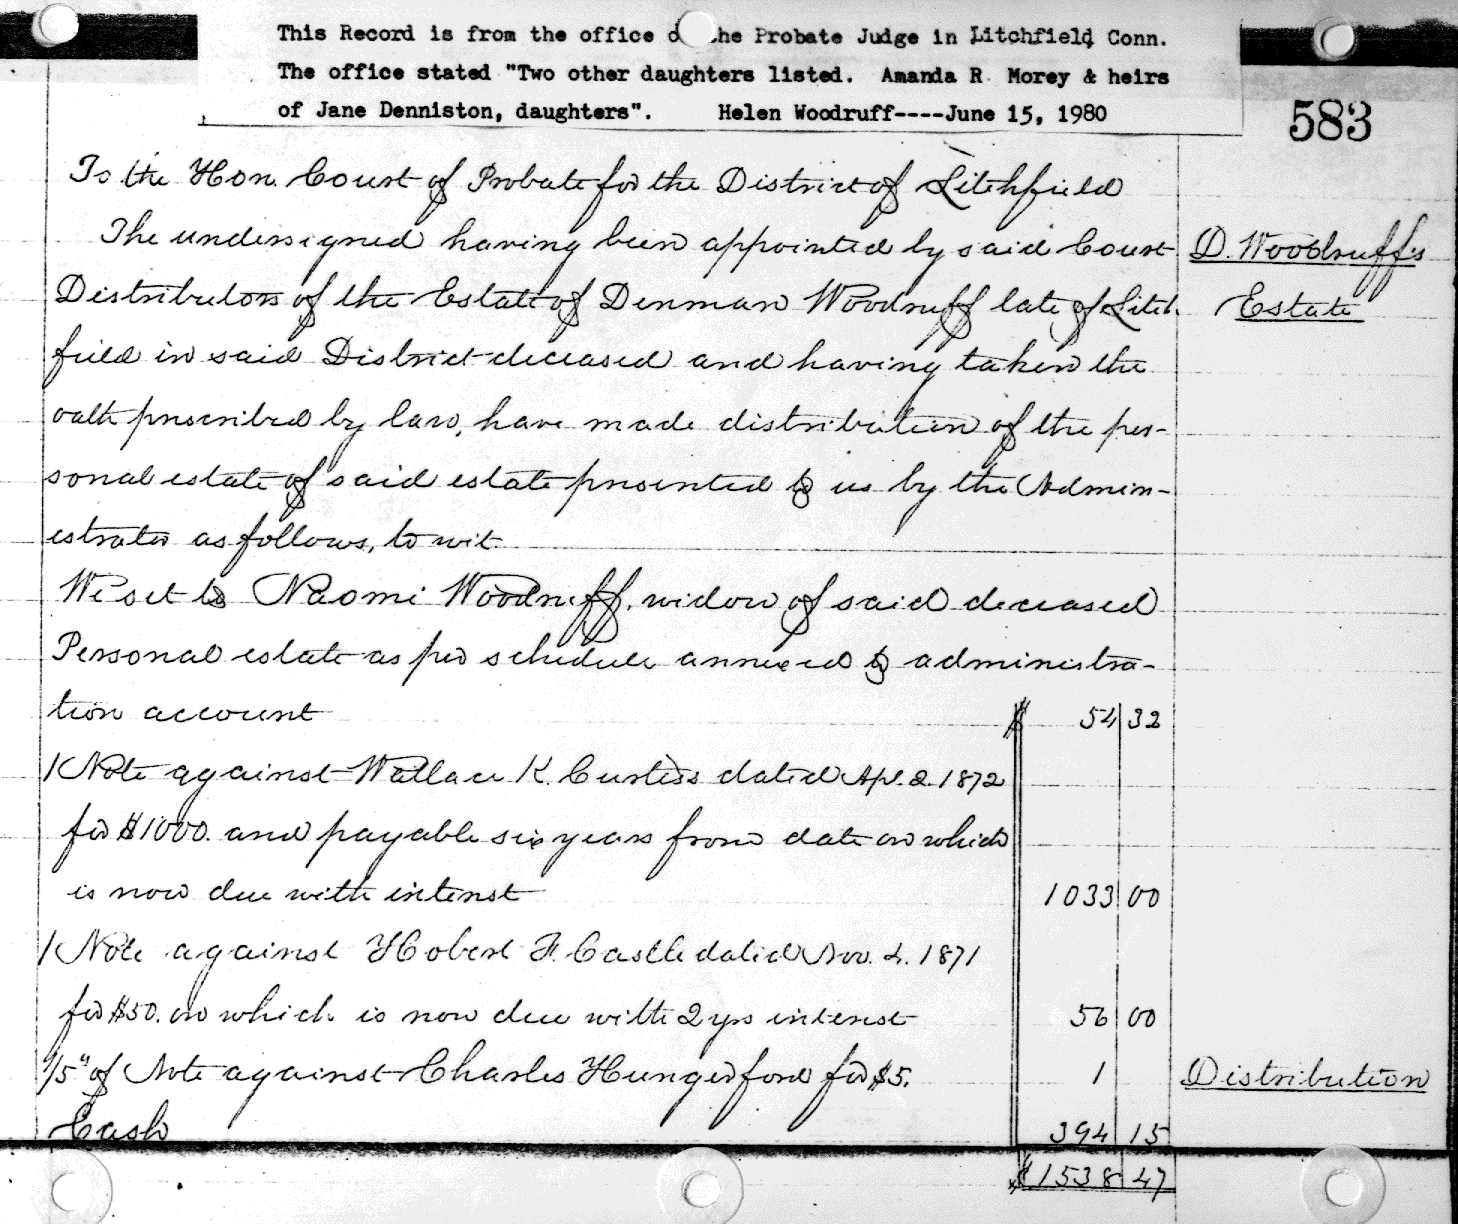 This Record is from the office of the Probate Judge in Litchfield Conn.
The office stated "Two other daughters listed. Amanda R. Morey & heirs
of Jane Denniston, daughters". Helen Woodruff----June 15, 1980
583
To the Hon. Court of Probate for the District of Litchfield
The undersigned having been appointed by said Court
D. Woodruff's
Distributors of the Estate of Denman Woodruff late of Litch.
Estate
field in said District deceased and having taken the
oath prescribed by law, have made distribution of the per-
sonal estate of said estate presented to us by the Admin-
istrator as follows, to wit.
We set to Naomi Woodruff, widow of said deceased
Personal estate as per schedule annexed to administra-
tion account $ 54 32
1 Note against Wallace K. Curtiss dated Apl. 2. 1872
for $1000. and payable six years from date on which
is now due with interest 1033 00
1 Note against Hobert F. Castle dated Nov. 4. 1871
for $50. on which is now due with 2 yrs interest 56 00
1/5" of Note against Charles Hungerford for $5. 1
Distribution
Cash 394 15
$1538 47